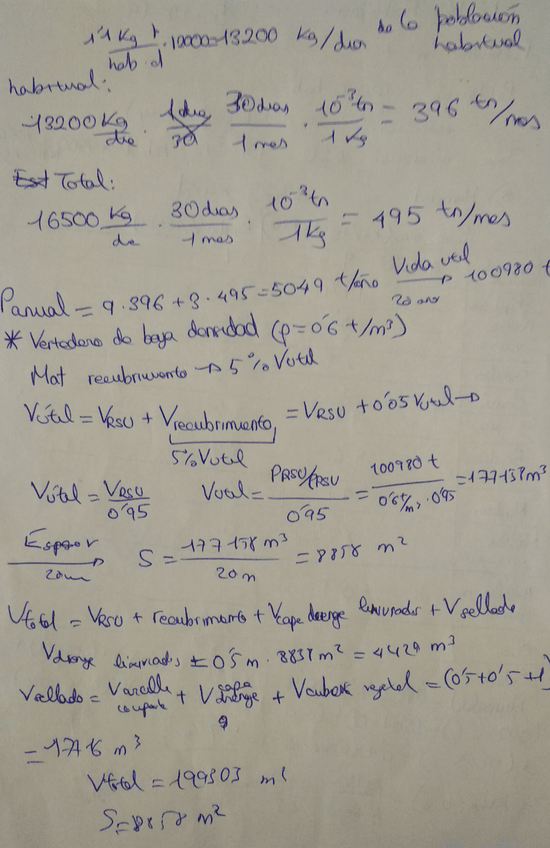 1'1 Kg r / hab·d · 12000=13200 Kg/dia de la población habitual
habitual:
13200 Kg/dia · 1 dia/30 · 30 dias/1 mes · 10^-3 tn/1 Kg = 396 tn/mes
Total:
16500 Kg/de · 30 dias/1 mes · 10^-3 tn/1 Kg = 495 tn/mes
Panual = 9·396 + 3·495 = 5049 t/año Vida util → 20 ans 100980 t
* Vertedero de baja densidad (ρ=0'6 t/m³)
Mat recubrimiento → 5% Vutil
Vútil = VRSU + Vrecubrimiento = VRSU + 0'05 Vutil →
5% Vutil
Vútil = VRSU/0'95 Vutil = PRSU/ρRSU / 0'95 = 100980 t / 0'6 t/m³ · 0'95 = 177158 m³
Espesor → 20m S = 177158 m³ / 20 m = 8858 m²
Vtotal = VRSU + recubrimiento + Vcapa drenge lixiviados + Vsellado
Vdrenge lixiviados = 0'5 m · 8858 m² = 4429 m³
Vsellado = Varcilla compacta + Vcapa drenge + Vcubierta vegetal = (0'5+0'5+1)
= 17716 m³
Vtotal = 199303 m³
S=8858 m²